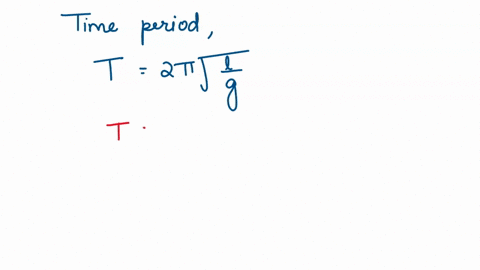 Time period,
T = 2π√(l/g)
T .